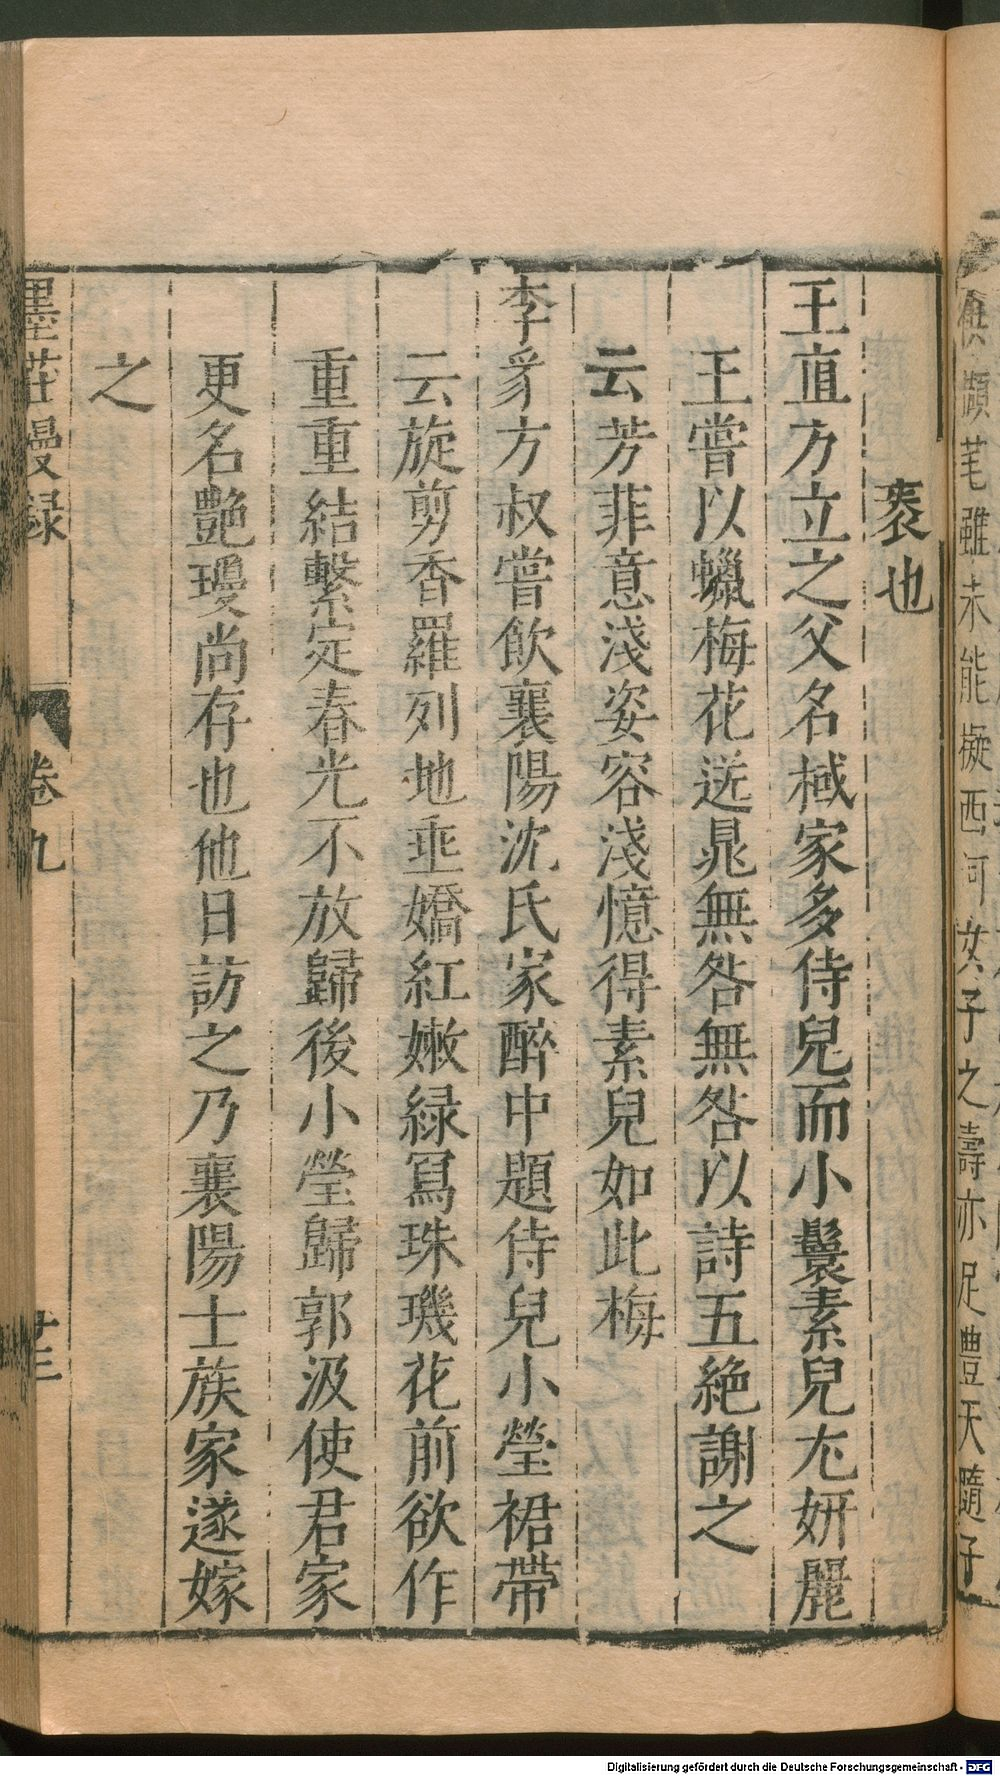 俱顯笔雖未能擬西河女子之壽亦足豊天隨子
裘也
王直方立之父名棫家多侍兒而小鬟素兒尢妍麗
王嘗以蠟梅花送晁無咎無咎以詩五絶謝之
云芳菲意淺姿容淺憶得素兒如此梅
李豸方叔嘗飲襄陽沈氏家醉中題侍兒小瑩裙帶
云旋剪香羅列地垂嬌紅嫩緑寫珠璣花前欲作
重重結繫定春光不放歸後小瑩歸郭汲使君家
更名艶瓊尚存也他日訪之乃襄陽士族家遂嫁
之
墨莊漫録 卷九 廿三
Digitalisierung gefördert durch die Deutsche Forschungsgemeinschaft - DFG